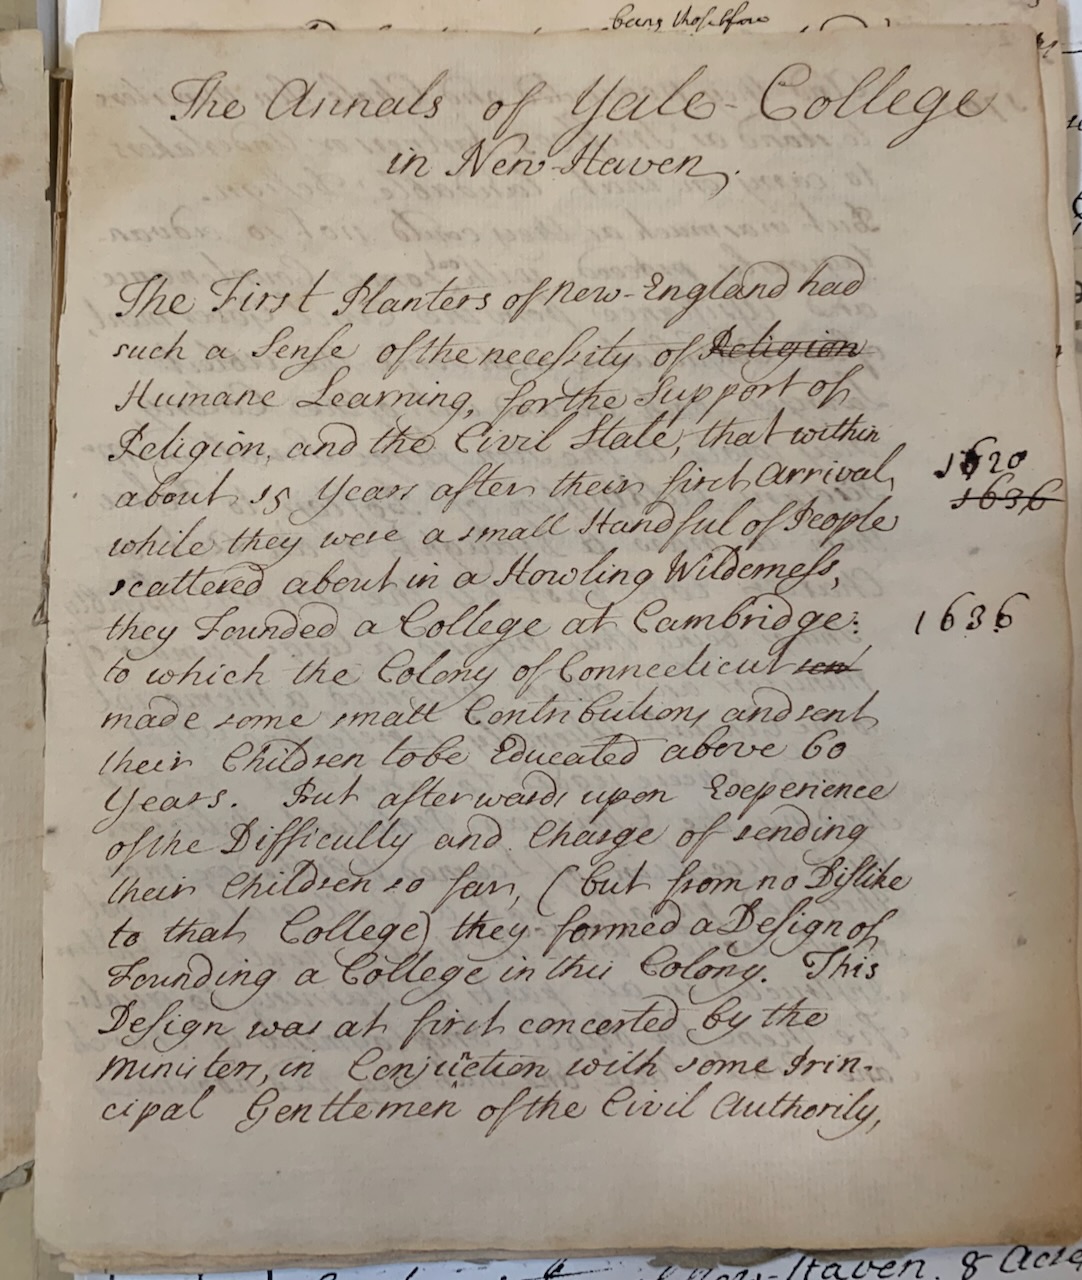 being those before
The Annals of Yale-College
in New-Haven.
The First Planters of New-England had
such a Sense of the necessity of Religion
Humane Learning, for the Support of
Religion, and the Civil State, that within
about 15 Years after their first Arrival, 1620
1636
while they were a small Handful of People
scattered about in a Howling Wilderness,
they Founded a College at Cambridge: 1636
to which the Colony of Connecticut sent
made some small Contributions and sent
their Children to be Educated above 60
Years. But afterwards upon Experience
of the Difficulty and Charge of sending
their Children so far, (but from no Dislike
to that College) they formed a Design of
Founding a College in this Colony. This
Design was at first concerted by the
Ministers, in Conjunction with some Prin-
cipal Gentlemen of the Civil Authority,
New-Haven 8 Acre